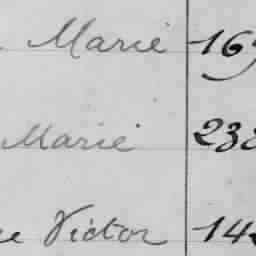 Marie 16
Marie 238
Victor 142